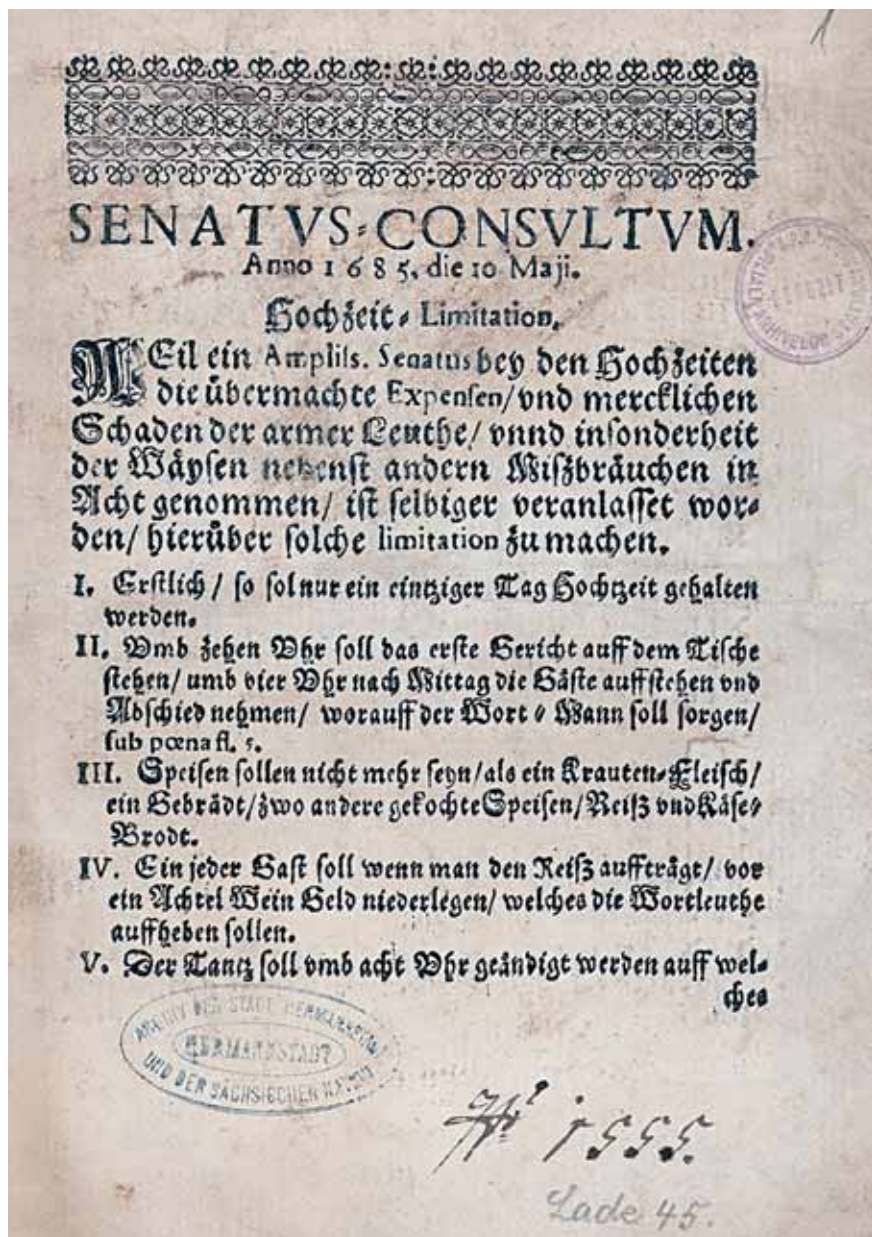 1
SENATVS=CONSVLTVM.
Anno 1685. die 10 Maji.
Hochzeit= Limitation.
WEil ein Ampliss. Senatus bey den Hochzeiten
die übermachte Expensen/ vnd mercklichen
Schaden der armer Leuthe/ vnnd insonderheit
der Wäysen nebenst andern Miszbräuchen in
Acht genommen/ ist selbiger veranlasset wor=
den/ hierüber solche limitation zu machen.
I. Erstlich / so sol nur ein eintziger Tag Hochtzeit gehalten
werden.
II. Vmb zehen Vhr soll das erste Gericht auff dem Tische
stehen/ umb vier Vhr nach Mittag die Gäste auffstehen vnd
Abschied nehmen/ worauff der Wort= Mann soll sorgen/
sub pœna fl. 5.
III. Speisen sollen nicht mehr seyn/als ein Krauten=Fleisch/
ein Gebrädt/zwo andere gekochte Speisen/Reisz vnd Käse=
Brodt.
IV. Ein jeder Gast soll wenn man den Reisz auffträgt/ vor
ein Achtel Wein Geld niederlegen/ welches die Wortleuthe
auffheben sollen.
V. Der Tantz soll vmb acht Vhr geändigt werden auff wel=
ches
ARCHIV DER STADT HERMANNSTADT
HERMANNSTADT
UND DER SÄCHSISCHEN NATION
No 1555.
Lade 45.